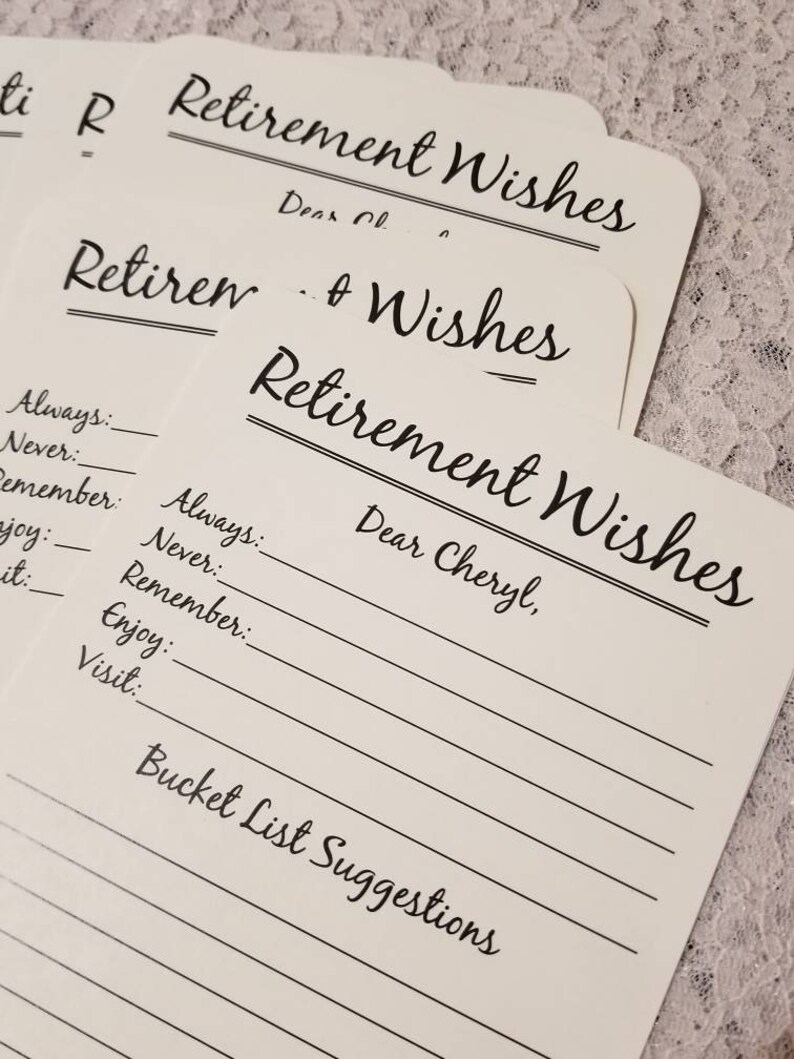 Retirement Wishes
Retirement Wishes
Always:
Never:
Retirement Wishes
Dear Cheryl,
Always:
Never:
Remember:
Enjoy:
Visit:
Bucket List Suggestions